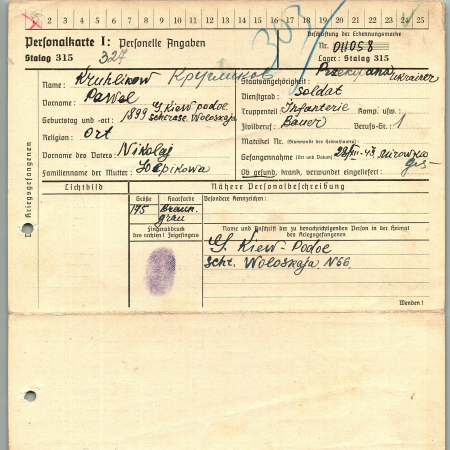 2 3 4 5 6 7 8 9 10 11 12 13 14 15 16 17 18 19 20 21 22 23 24 25
Personalkarte I: Personelle Angaben
Beschriftung der Erkennungsmarke
Stalag 315 327
303
Nr. 04058
Lager: Stalag 315
Name: Kruhlikow Кругликов
Vorname: Pawel
Geburtstag und -ort: 1899 G. Kiew podol.
Religion: Ort
Vorname des Vaters: Nikolaj
Familienname der Mutter:
Staatsangehörigkeit: Ukrainer
Dienstgrad: Soldat
Truppenteil Infanterie Komp. usw.:
Zivilberuf: Bauer Berufs-Gr.: 1
Matrikel Nr. (Stammrolle des Heimatstaates):
Gefangennahme (Ort und Datum)
Ob gesund, krank, verwundet eingeliefert:
Des Kriegsgefangenen
Lichtbild
Nähere Personalbeschreibung
Größe Haarfarbe Besondere Kennzeichen:
175 Braun.
grau
Fingerabdruck
des rechten! Zeigefingers
Name und Anschrift der zu benachrichtigenden Person in der Heimat
des Kriegsgefangenen
G. Kiew-Podol
Woloskaja N66
Wenden!